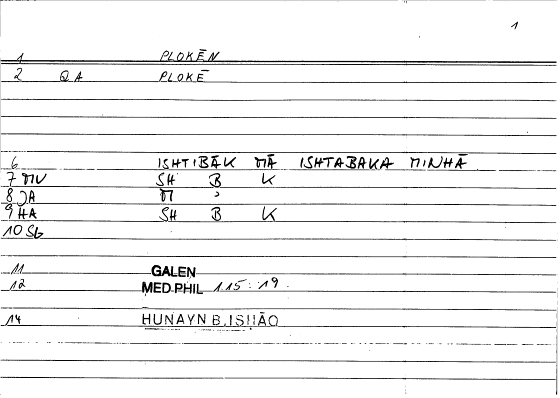 1
1 PLOKĒN
2 QA PLOKĒ
6 ISHTIBĀK MĀ ISHTABAKA MINHĀ
7 MV SH B K
8 JA M ʾ
9 HA SH B K
10 SG
11 GALEN
12 MED.PHIL 1 15: 19.
14 HUNAYN B.ISHĀQ